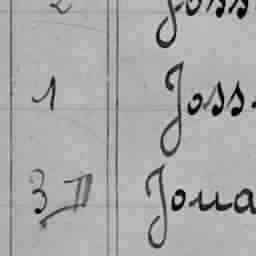 2 Joss
1 Joss.
3 II Joua